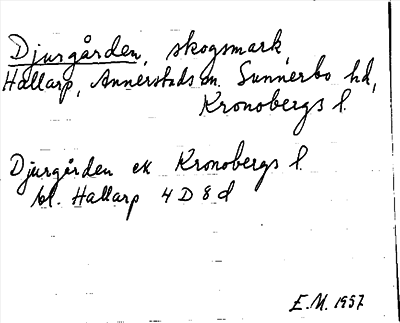 Djurgården, skogsmark,
Hallarp, Annerstads sn. Sunnerbo hd,
Kronobergs l.
Djurgården ek Kronobergs l.
bl. Hallarp 4 D 8 d
E.M. 1957